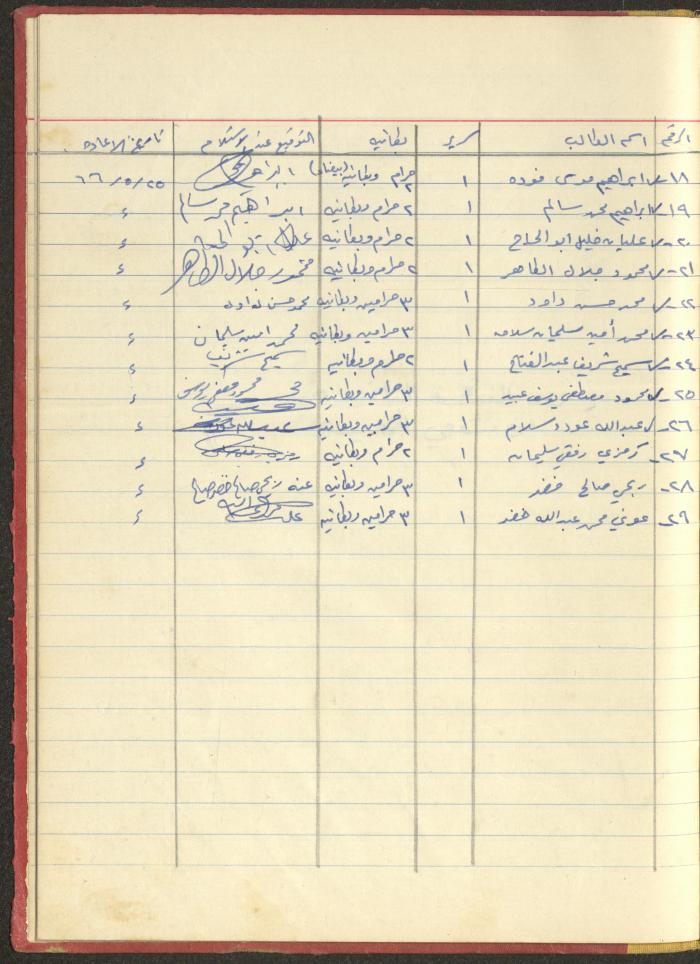 الرقم اسم الطالب سرير بطانيه التوقيع عند الاستلام تاريخ الاعاده
١٨- ابراهيم موسى فوده ١ ٢ حرام وبطانيه (بيضاء) ابراهيم ٦٦/٥/٢٥
١٩- ابراهيم محمد سالم ١ ٢ حرام وبطانيه ابراهيم محمد سالم ء
٢٠- عليان خليل ابو الحاج ١ ٢ حرام وبطانيه ء
٢١- محمود جلال الطاهر ١ ٢ حرام وبطانيه محمود جلال الطاهر ء
٢٢- محمد حسن داود ١ ٣ حرامين وبطانيه محمد حسن داود ء
٢٣- محمد أمين سليمان سلامه ١ ٣ حرامين وبطانيه محمد امين سليمان ء
٢٤- سميح شريف عبد الفتاح ١ ٢ حرام وبطانيه سميح شريف ء
٢٥- محمود مصطفى يوسف عبيد ١ ٣ حرامين وبطانيه محمود مصطفى يوسف ء
٢٦- عبدالله عوده سلام ١ ٣ حرامين وبطانيه ء
٢٧- رمزي رفقي سليمان ١ ٢ حرام وبطانيه ء
٢٨- ربحي صالح خضر ١ ٣ حرامين وبطانيه عنه ربحي صالح خضر صالح ء
٢٩- عوني محمد عبدالله خضر ١ ٣ حرامين وبطانيه ء